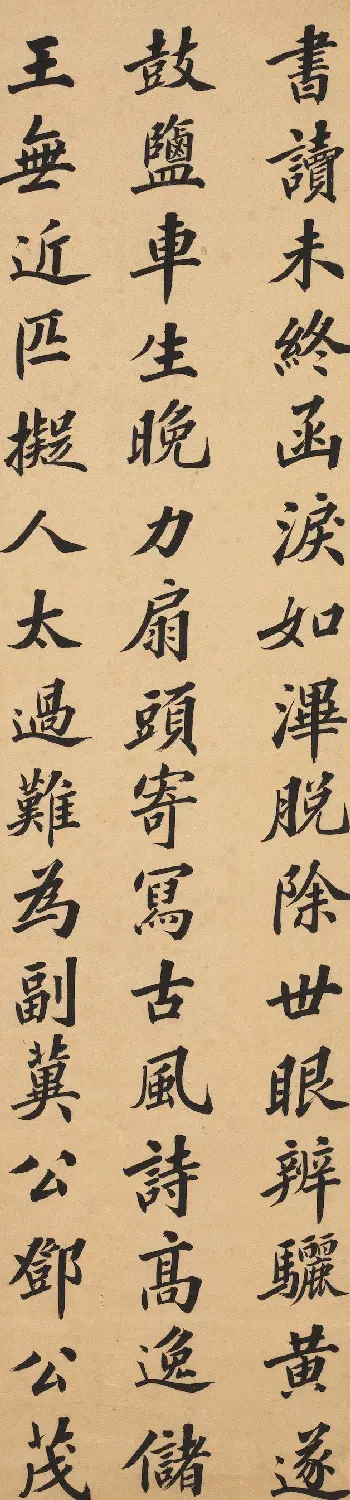 書讀未終函淚如滭脫除世眼辨驪黃遂
鼓鹽車生晚力扇頭寄冩古風詩高逸儲
王無近匹擬人太過難為副冀公鄧公茂